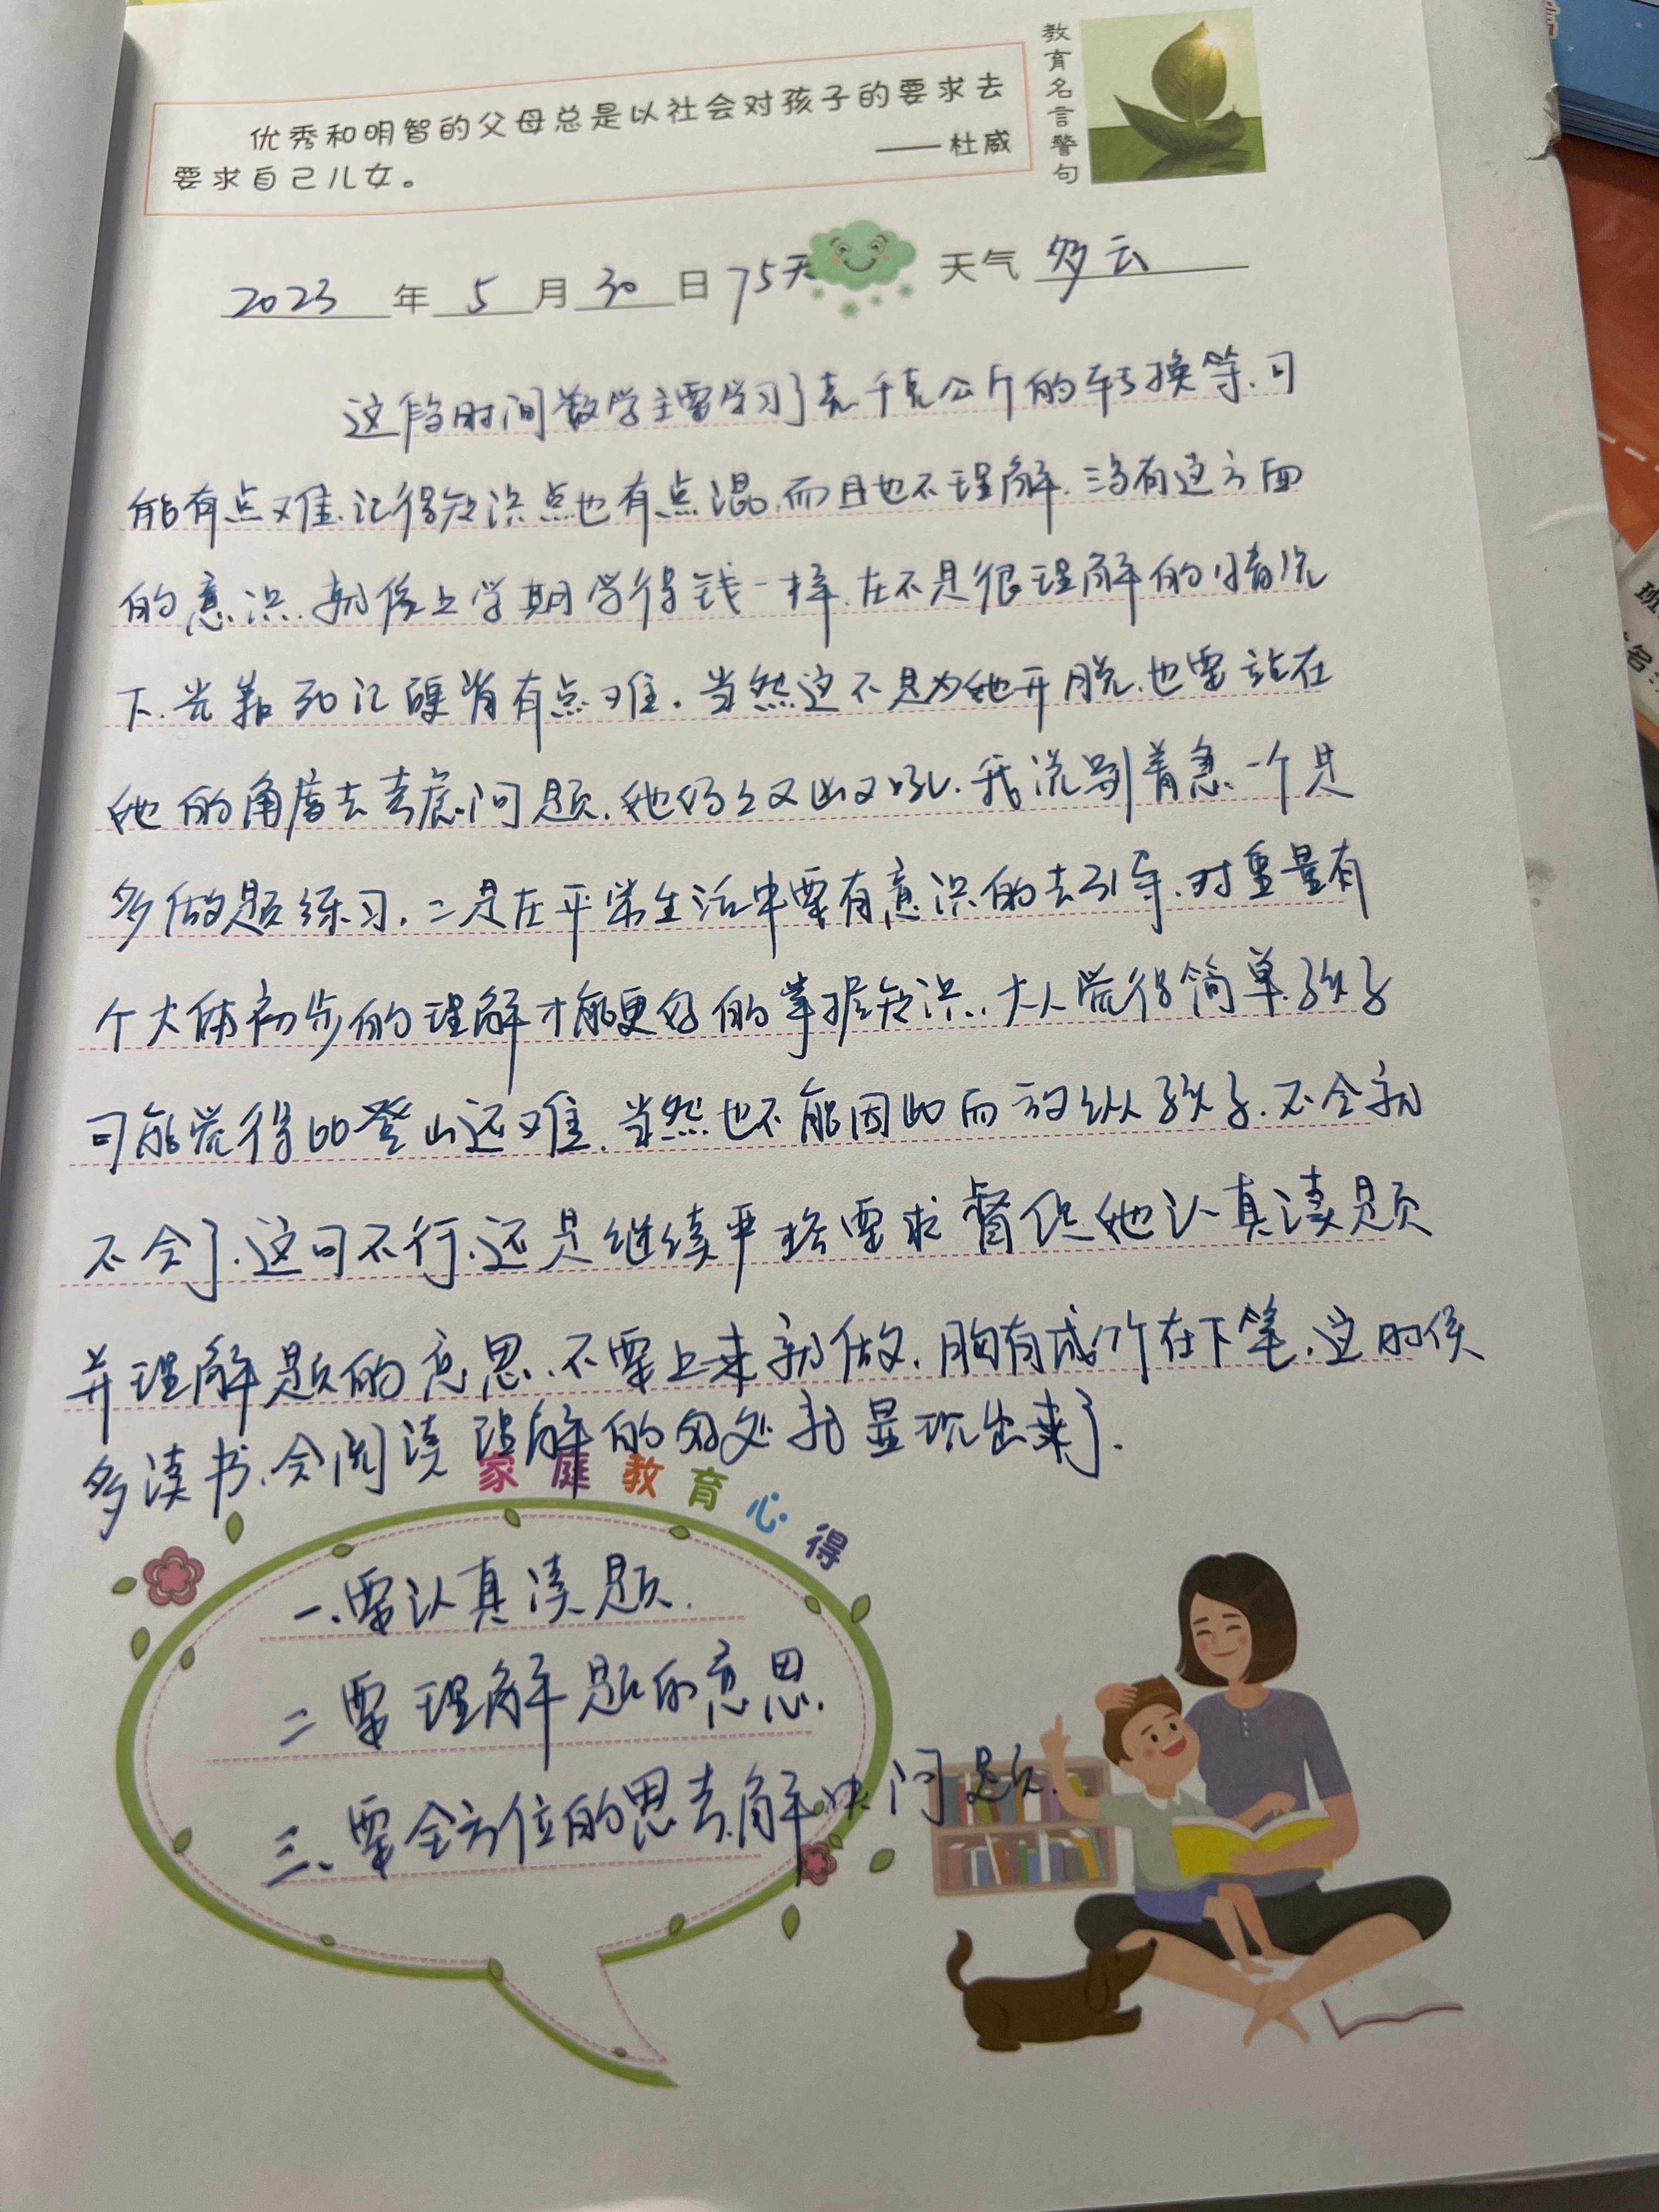 优秀和明智的父母总是以社会对孩子的要求去
要求自己儿女。 ——杜威
教育名言警句
2023年5月30日 75天 天气 多云
这段时间数学主要学习了克千克公斤的转换等,可
能有点难,记得知识点也有点混,而且也不理解,没有这方面
的意识,就像上学期学得钱一样,在不是很理解的情况
下,光靠死记硬背有点难。当然这不是为她开脱,也要站在
她的角度去考虑问题,她妈又凶又吼,我说别着急,一个是
多做题练习,二是在平常生活中要有意识的去引导,对重量有
个大体初步的理解才能更好的掌握知识,大人觉得简单,孩子
可能觉得比登山还难,当然也不能因此而放纵孩子,不会就
不会了,这可不行,还是继续严格要求督促她认真读题
并理解题的意思,不要上来就做,胸有成竹在下笔,这时候
多读书,会阅读理解的好处就显现出来了.
家庭教育心得
一、要认真读题.
二要理解题的意思.
三、要全方位的思考解决问题.
班
名: